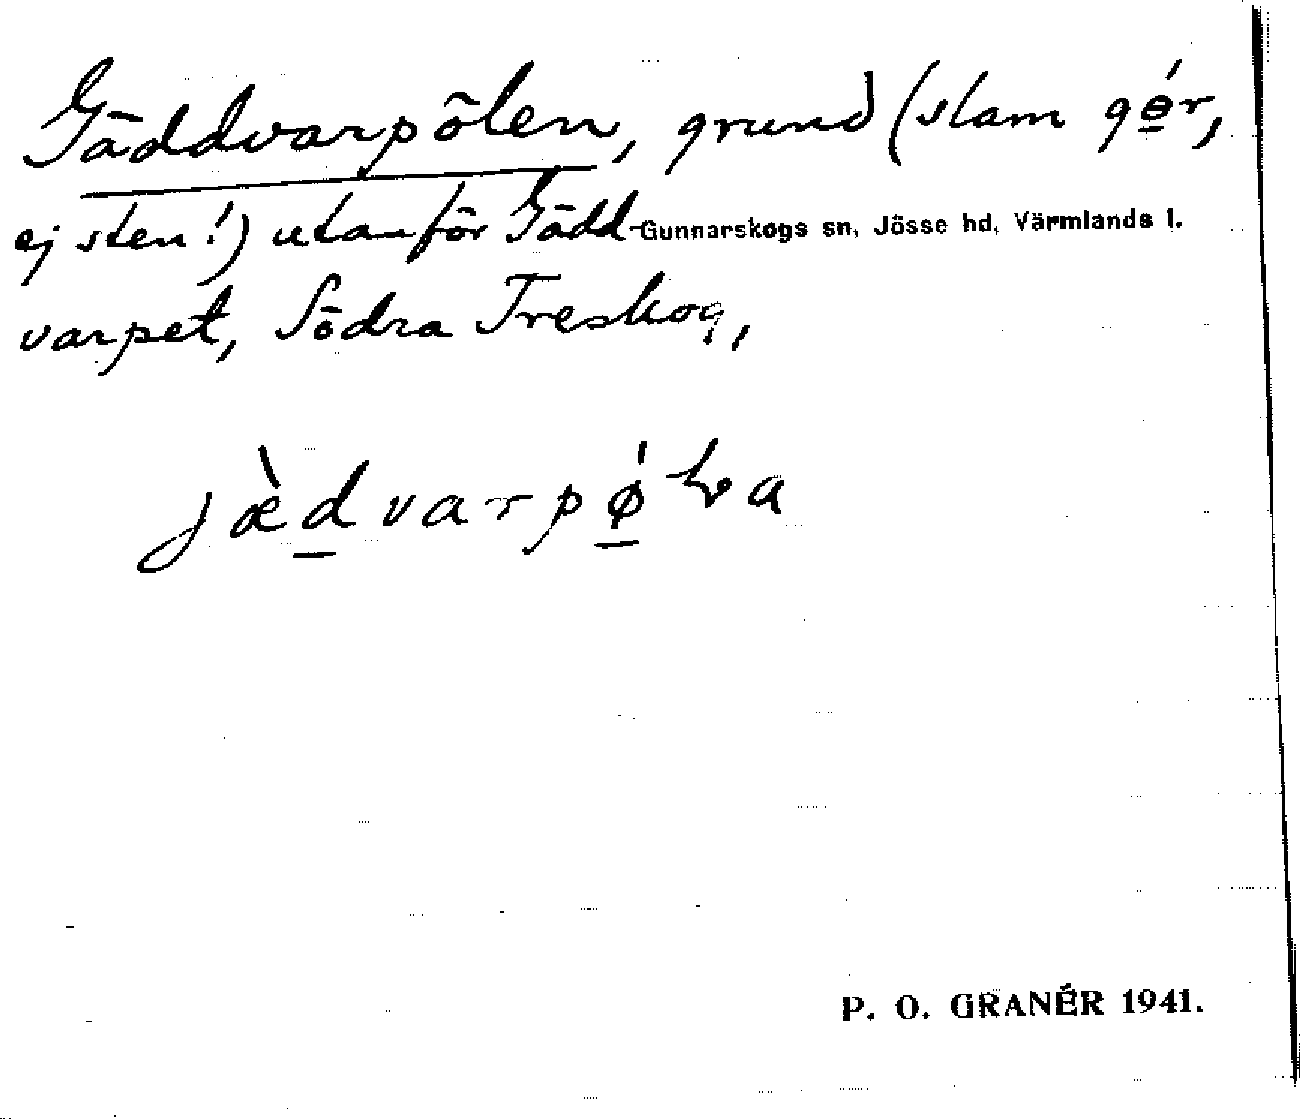 Gäddvarpölen, grund (slam gør,
ej sten!) utanför Gädd-
Gunnarskogs sn, Jösse hd, Värmlands l.
varpet, Södra Treskog,
jæ̀dvarpǿɫva
P. O. GRANÉR 1941.